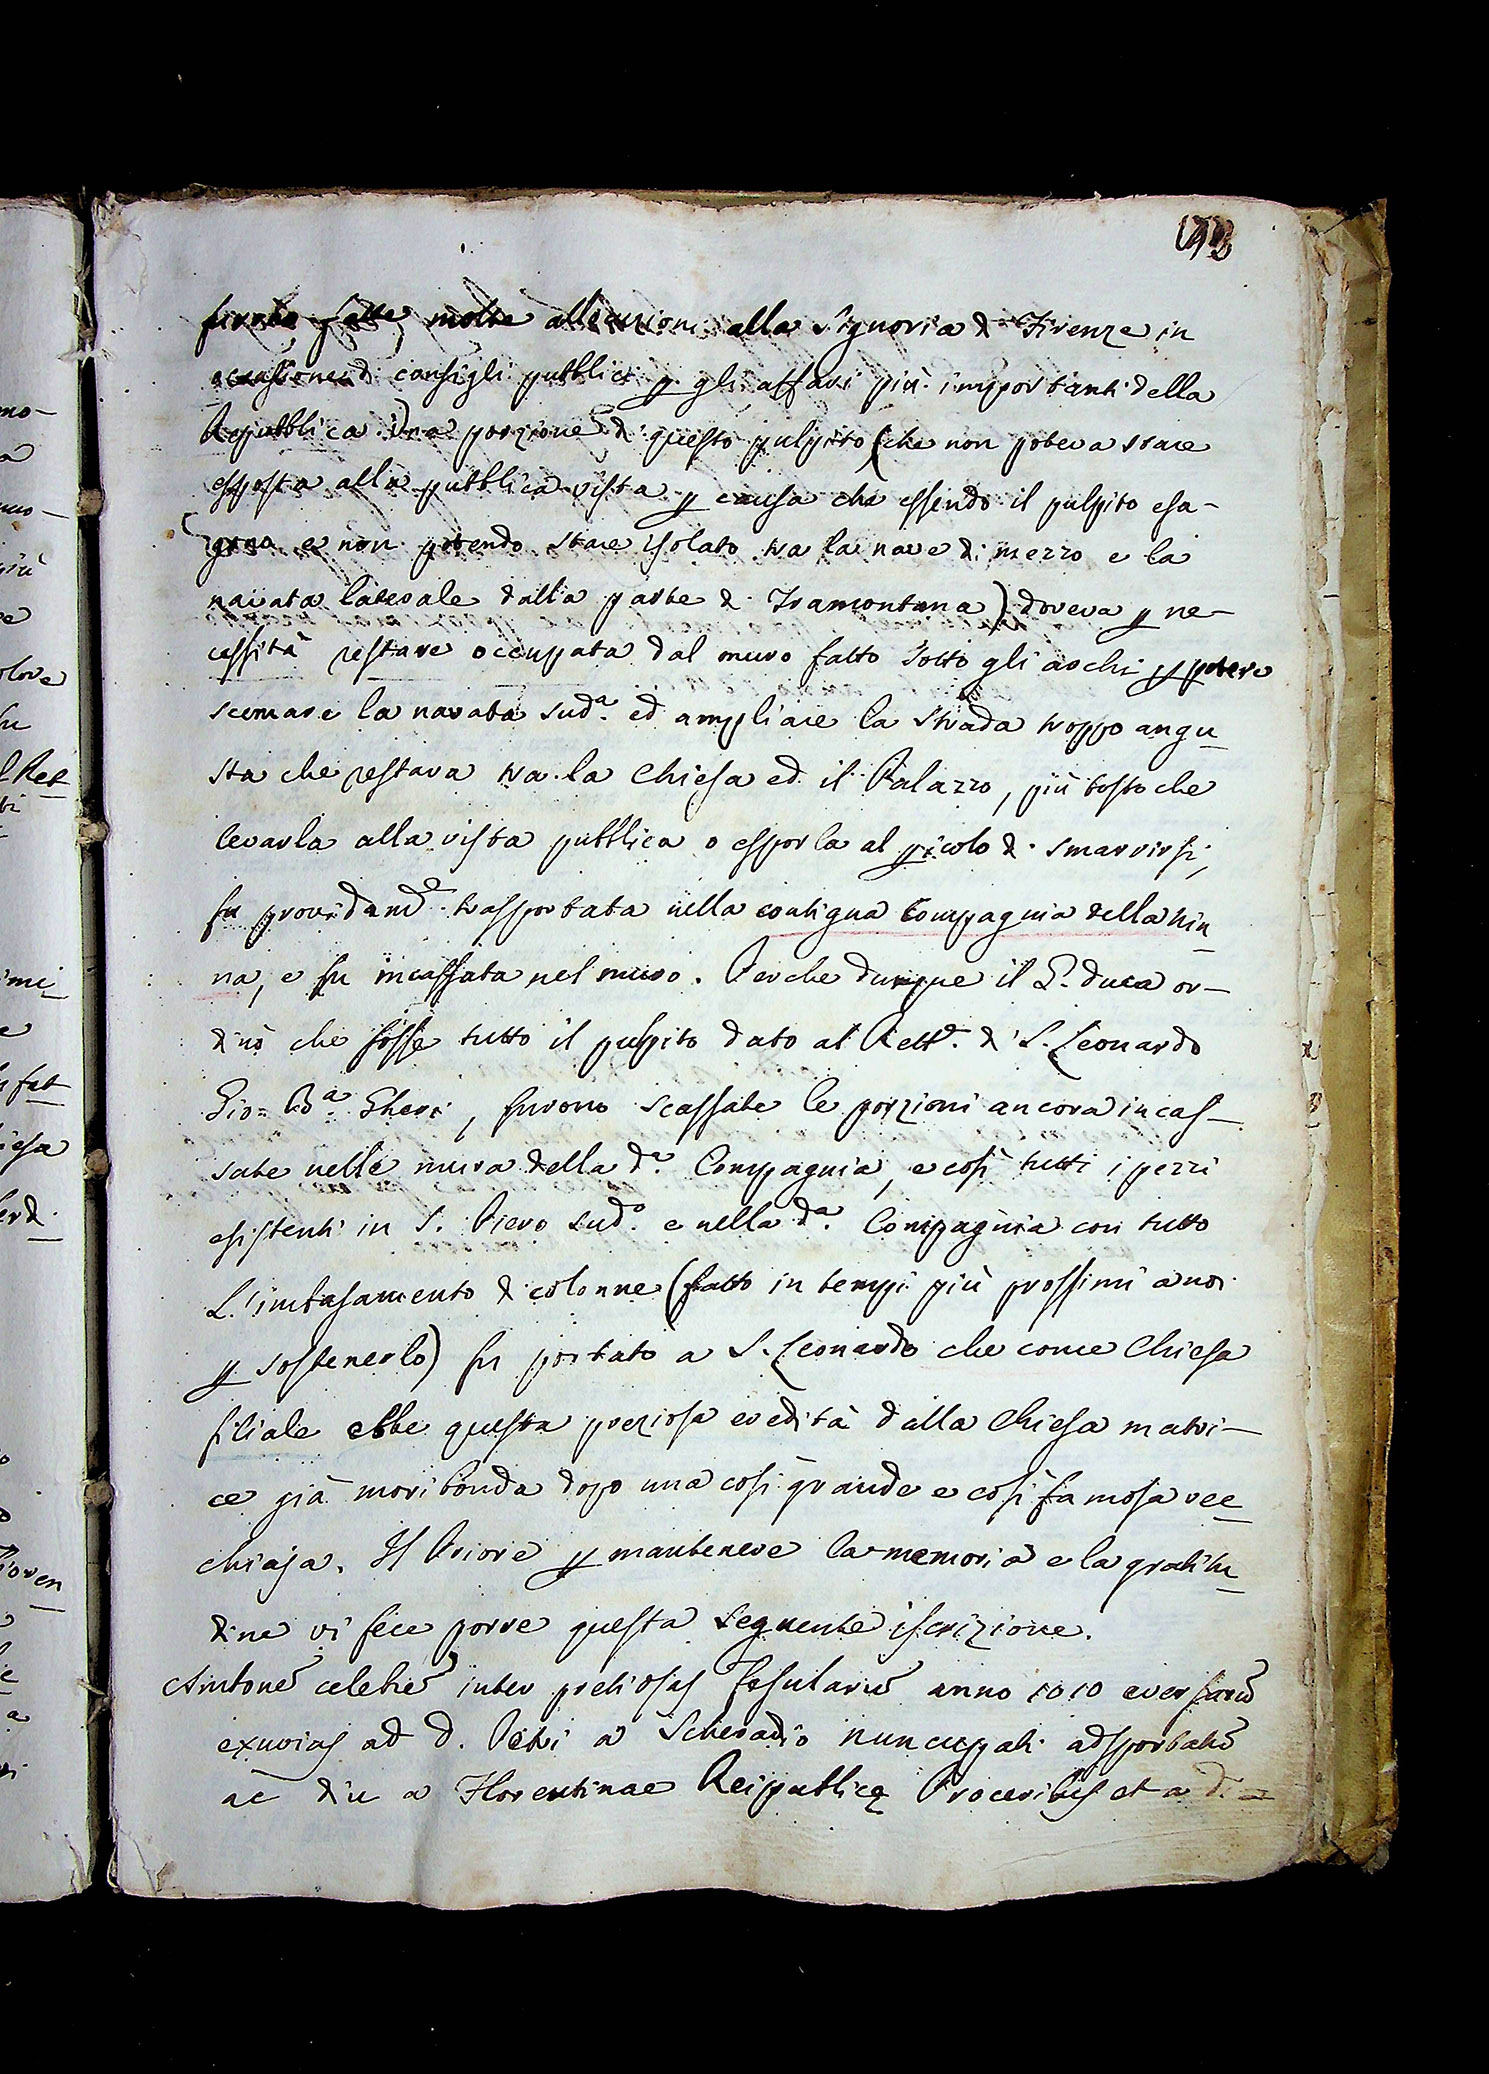 furono fatte molte allocuzioni alla Signoria di Firenze in
occasione di consigli pubblici p gli affari più importanti della
Repubblica) Una porzione di questo pulpito (che non poteva stare
esposta alla pubblica vista p causa che essendo il pulpito esa-
gono e non potendo stare isolato tra la nave di mezzo e la
navata laterale dalla parte di Tramontana) doveva p ne-
cessità restare occupata dal muro fatto sotto gli archi p potere
scemare la navata sud.ª ed ampliare la strada troppo angu-
sta che restava tra la Chiesa ed il Palazzo, più tosto che
levarla alla vista pubblica o esporla al picolo di smarrirsi,
fu providamᵉ trasportata nella contigua Compagnia della Nin-
na, e fu incassata nel muro. Perche dunque il G. Duca or-
dinò che fosse tutto il pulpito dato al Rettᵉ. di S. Leonardo
Gio= Bª. Gheri, furono scassate le porzioni ancora incas-
sate nelle mura della dª. Compagnia, e così tutti i pezzi
esistenti in S. Piero sudº. e nella dª. Compagnia con tutto
L'imbasamento di colonne (fatto in tempi più prossimi a noi
p sostenerlo) fu portato a S. Leonardo che come Chiesa
filiale ebbe questa preziosa eredità dalla Chiesa matri-
ce già moribonda dopo una così grande e così famosa vec-
chiaja. Il Priore p mantenere la memoria e la gratitu-
dine vi fece porre questa seguente iscrizione.
Ambonē celebrē inter pretiosas Fesularū anno 1010 eversarū
exuvias ad D. Petri a Scheradio nuncupati adsportatū
ac diu a Florentinae Reipublicę Proceribus et a D.=